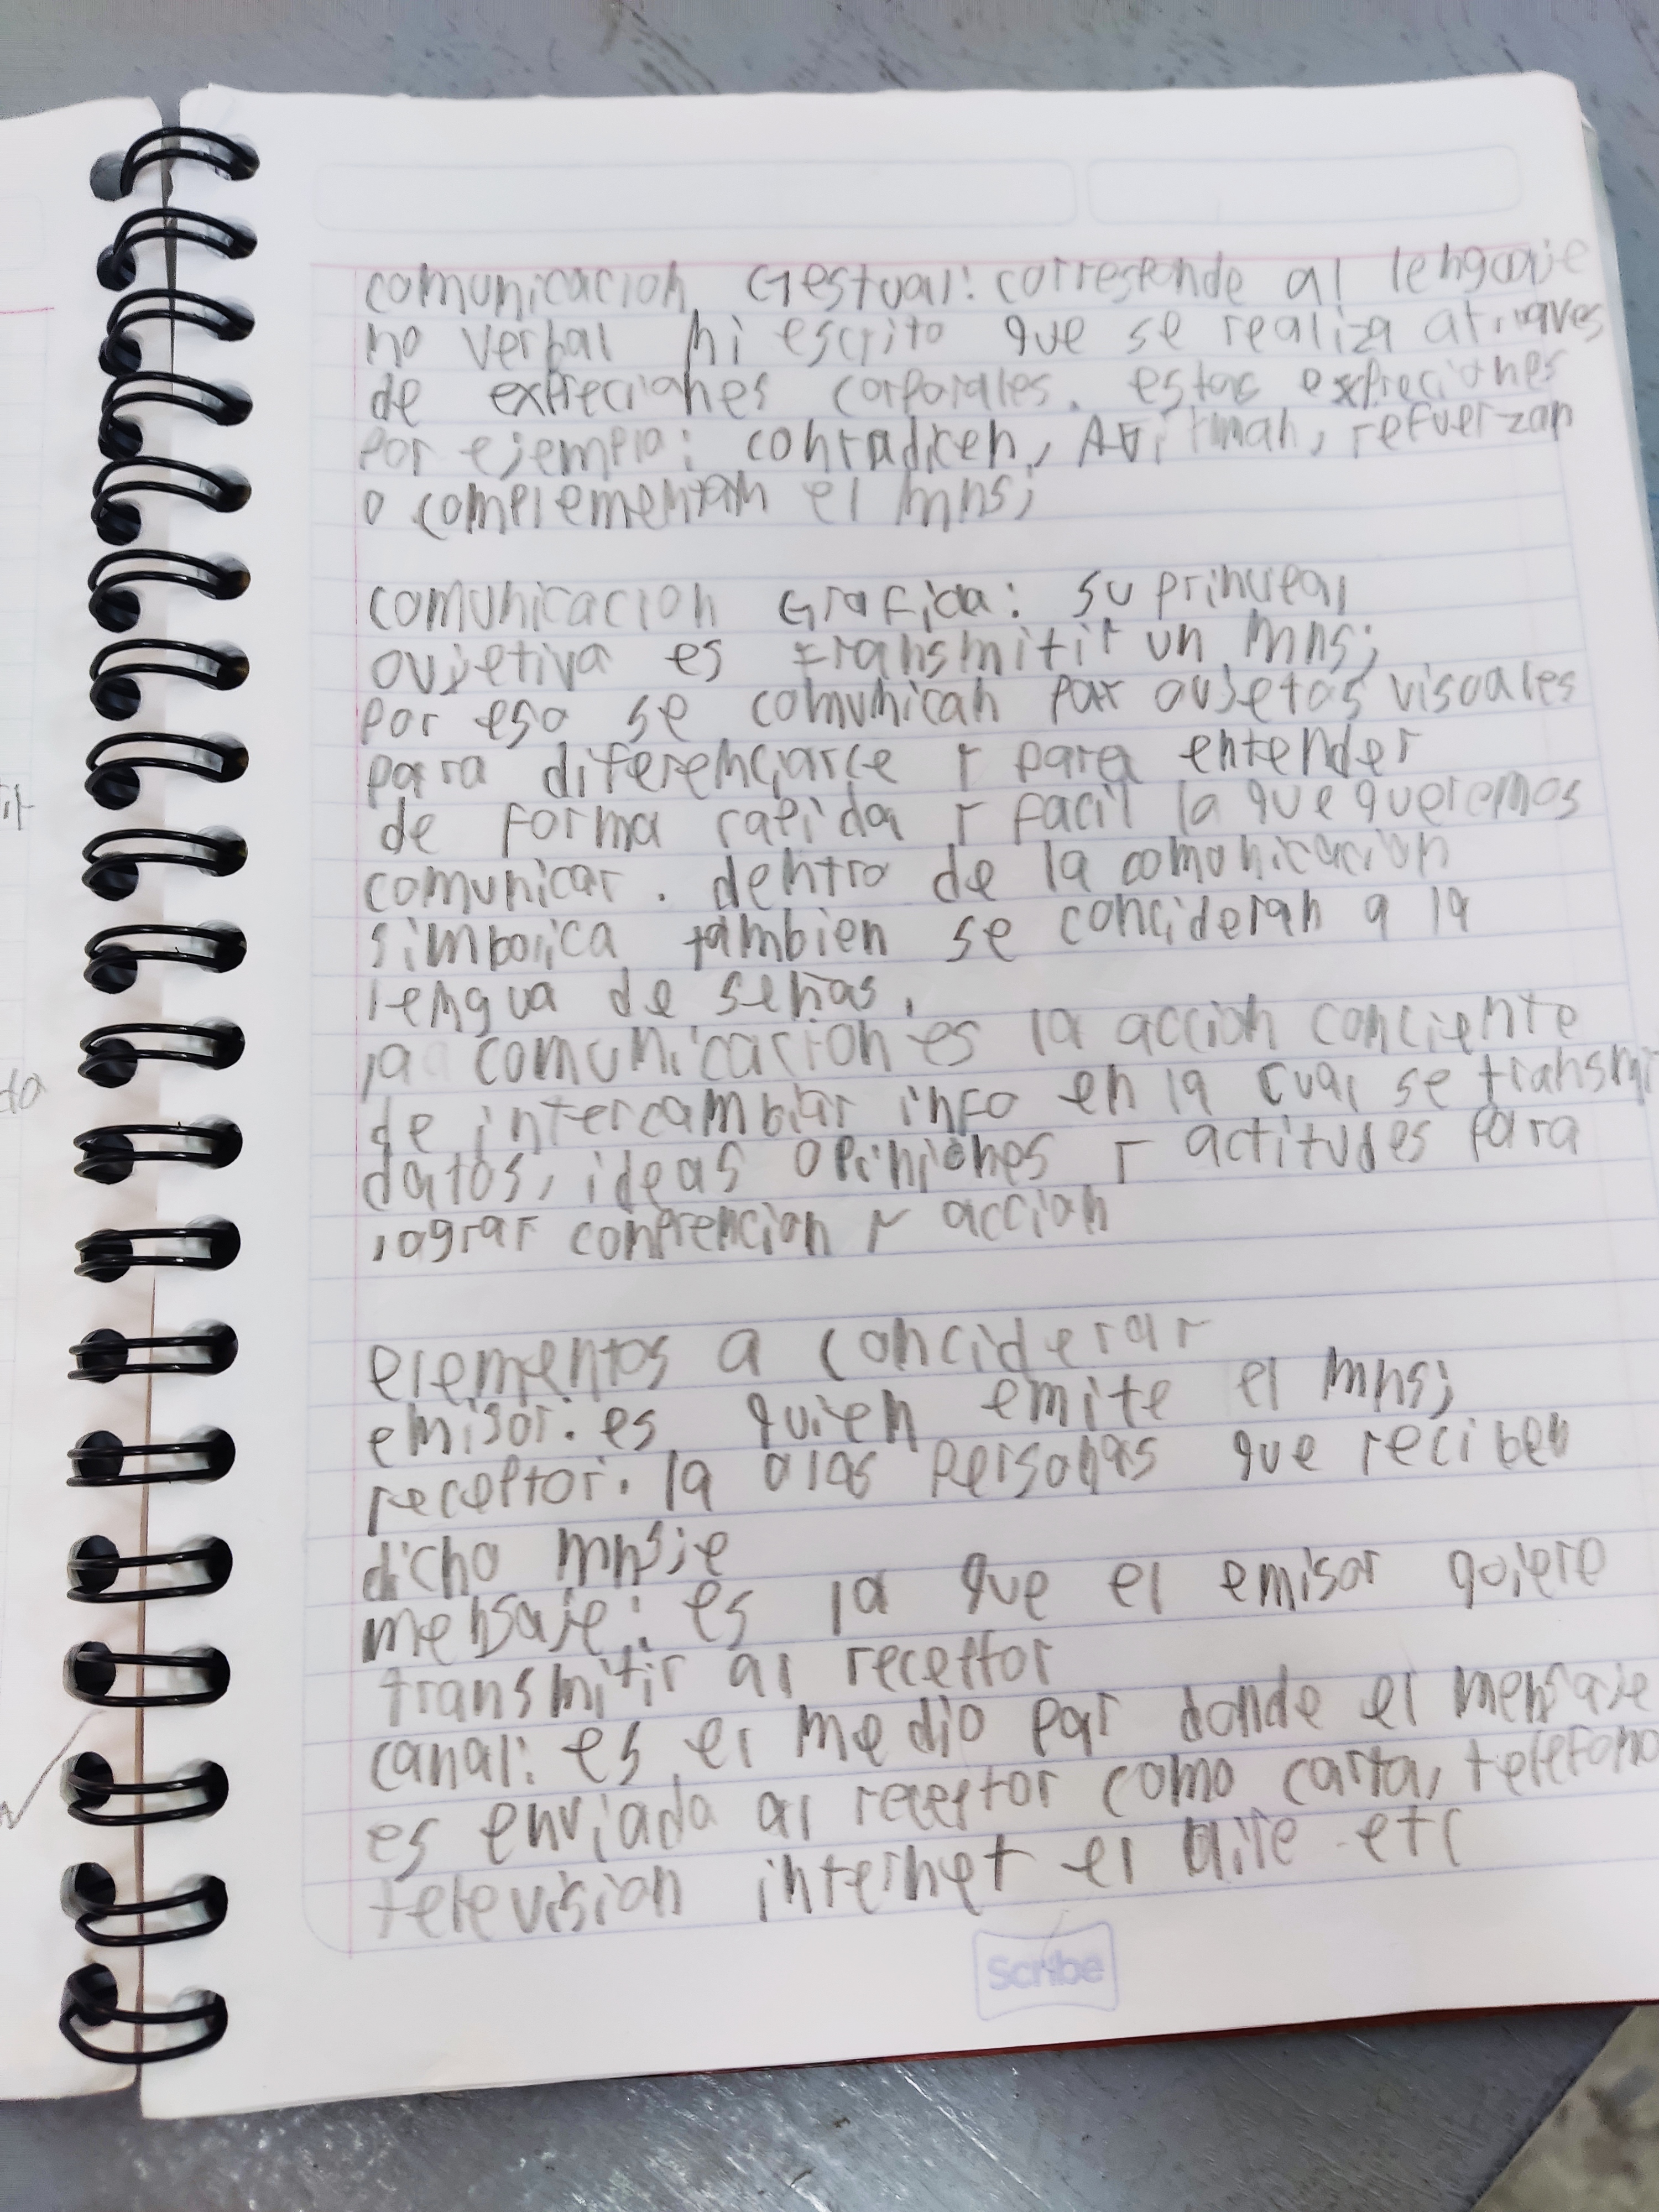 comunicacion Gestual: corresponde al lenguaje
no verbal ni escrito que se realiza atraves
de expreciones corporales. estas expreciones
por ejemplo: contradicen, Afirman, refuerzan
o complementan el mns;
comunicacion Grafica: su principal
ovjetiva es transmitir un mns;
por eso se comunican por ovjetos visuales
para diferenciarce y para entender
de forma rapida y facil lo que queremos
comunicar. dentro de la comunicacion
simbolica tambien se concideran a la
lengua de señas.
la comunicacion es la accion conciente
de intercambiar info en la cual se transmi
datos, ideas opiniones y actitudes para
lograr comprencion y accion
elementos a conciderar
emisor. es quien emite el mns;
receptor. la o las personas que reciben
dicho mnsje
mensaje: es lo que el emisor quiere
transmitir al receptor
canal: es el medio por donde el mensaje
es enviado al receptor como carta, telefono
television internet el aire etc
Scribe